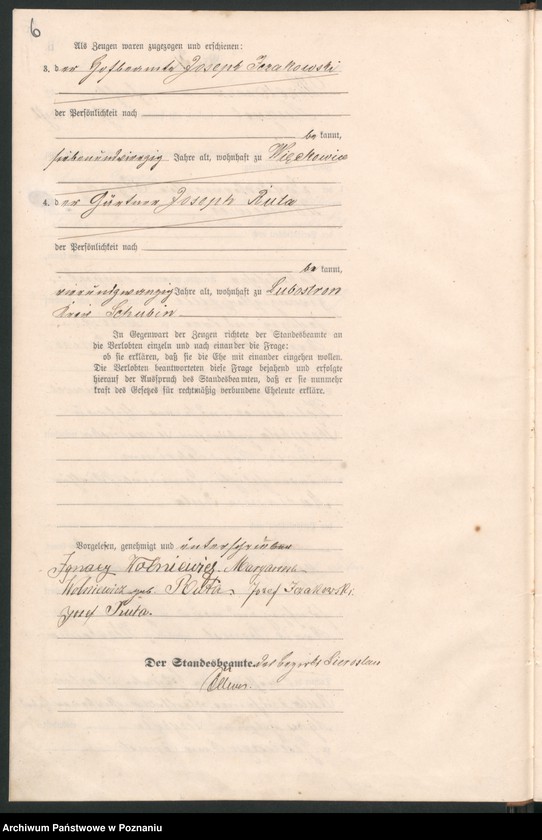 6
Als Zeugen waren zugezogen und erschienen:
3. der Hofbeamte Joseph Izakowski
der Persönlichkeit nach
be kannt,
siebenundvierzig Jahre alt, wohnhaft zu Więckowice
4. der Gärtner Joseph Ruta
der Persönlichkeit nach
be kannt,
vierundzwanzig Jahre alt, wohnhaft zu Lubostron
Kreis Schubin
In Gegenwart der Zeugen richtete der Standesbeamte an
die Verlobten einzeln und nach einander die Frage:
ob sie erklären, daß sie die Ehe mit einander eingehen wollen.
Die Verlobten beantworteten diese Frage bejahend und erfolgte
hierauf der Ausspruch des Standesbeamten, daß er sie nunmehr
kraft des Gesetzes für rechtmäßig verbundene Eheleute erkläre.
Vorgelesen, genehmigt und unterschrieben
Ignacy Wolniewicz Margareta
Wolniewicz geb Ruta, Josef Izakowski
Josef Ruta.
Der Standesbeamte. des Bezirks
Archiwum Państwowe w Poznaniu